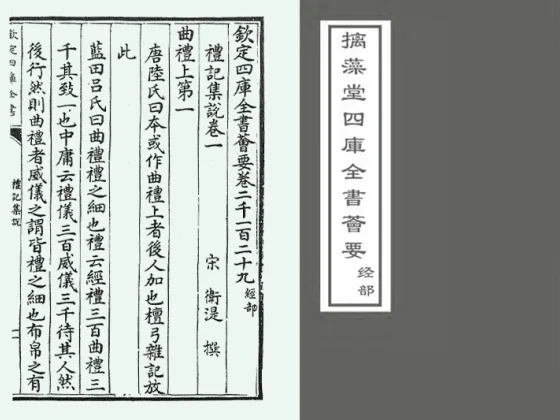 欽定四庫全書薈要卷二千一百二十九 經部
禮記集說卷一
宋 衛湜 撰
曲禮上第一
唐陸氏曰本或作曲禮上者後人加也檀弓雜記放
此
藍田呂氏曰曲禮禮之細也禮云經禮三百曲禮三
千其致一也中庸云禮儀三百威儀三千待其人然
後行然則曲禮者威儀之謂皆禮之細也布帛之有
欽定四庫全書
禮記集說
一
摛藻堂四庫全書薈要
经部